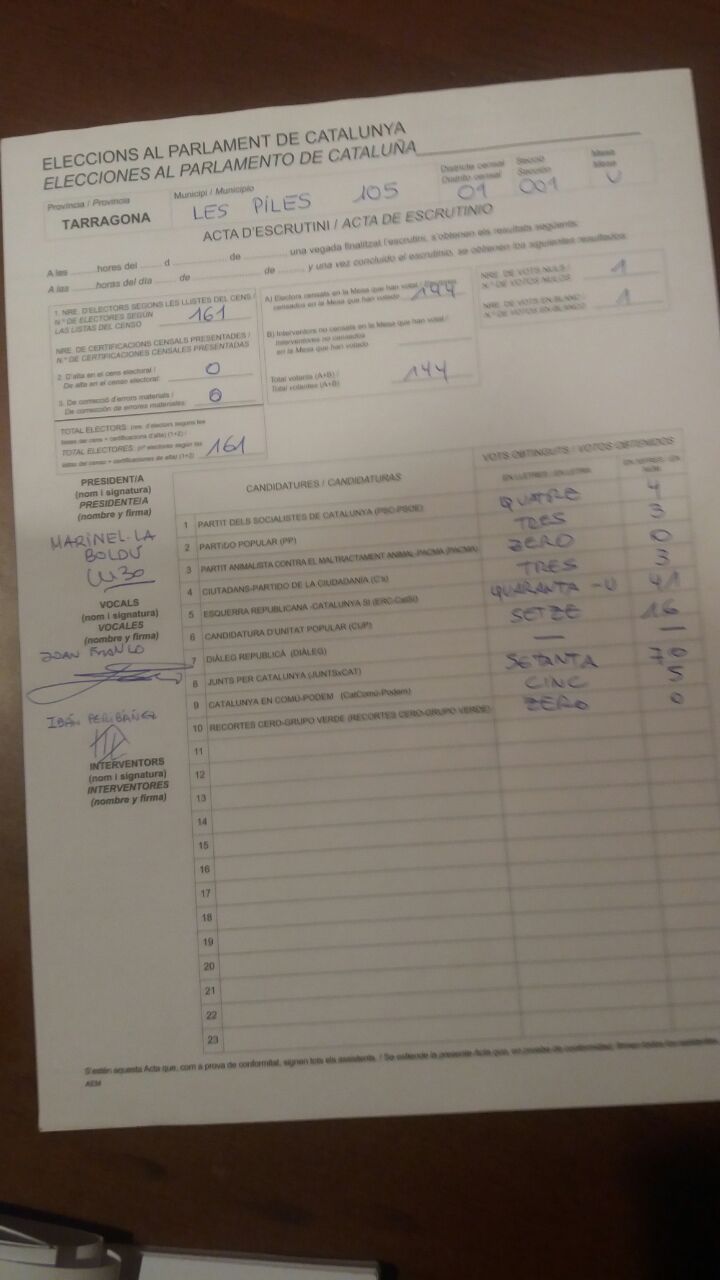 ELECCIONS AL PARLAMENT DE CATALUNYA
ELECCIONES AL PARLAMENTO DE CATALUÑA
Província / Provincia
TARRAGONA
Municipi / Municipio
LES PILES 105
Districte censal
Distrito censal
01
Secció
Sección
001
Mesa
Mesa
U
ACTA D'ESCRUTINI / ACTA DE ESCRUTINIO
A les ......... hores del ......... d ......... de ......... , una vegada finalitzat l'escrutini, s'obtenen els resultats següents:
A las ......... horas del día ......... de ......... de ......... , y una vez concluido el escrutinio, se obtienen los siguientes resultados:
1. NRE. D'ELECTORS SEGONS LES LLISTES DEL CENS /
N.º DE ELECTORES SEGÚN
LAS LISTAS DEL CENSO
161
NRE. DE CERTIFICACIONS CENSALS PRESENTADES /
N.º DE CERTIFICACIONES CENSALES PRESENTADAS
2. D'alta en el cens electoral /
De alta en el censo electoral:
0
3. De correcció d'errors materials /
De corrección de errores materiales:
0
TOTAL ELECTORS: (nre. d'electors segons les
llistes de cens + certificacions d'alta) (1+2) /
TOTAL ELECTORES: (nº electores según las
listas del censo + certificaciones de alta) (1+2)
161
A) Electors censats en la Mesa que han votat /
censados en la Mesa que han votado
144
B) Interventors no censats en la Mesa que han votat /
Interventores no censados
en la Mesa que han votado
Total votants (A+B) /
Total votantes (A+B)
144
NRE. DE VOTS NULS /
N.º DE VOTOS NULOS
1
NRE. DE VOTS EN BLANC /
N.º DE VOTOS EN BLANCO
1
PRESIDENT/A
(nom i signatura)
PRESIDENTE/A
(nombre y firma)
MARINEL·LA
BOLDÚ
VOCALS
(nom i signatura)
VOCALES
(nombre y firma)
JOAN FRANCO
IBÁN PERIBÁÑEZ
INTERVENTORS
(nom i signatura)
INTERVENTORES
(nombre y firma)
CANDIDATURES / CANDIDATURAS
VOTS OBTINGUTS / VOTOS OBTENIDOS
EN LLETRES / EN LETRA
EN XIFRES / EN NÚM.
1 PARTIT DELS SOCIALISTES DE CATALUNYA (PSC-PSOE) QUATRE 4
2 PARTIDO POPULAR (PP) TRES 3
3 PARTIT ANIMALISTA CONTRA EL MALTRACTAMENT ANIMAL-PACMA (PACMA) ZERO 0
4 CIUTADANS-PARTIDO DE LA CIUDADANÍA (C's) TRES 3
5 ESQUERRA REPUBLICANA -CATALUNYA SÍ (ERC-CatSí) QUARANTA-U 41
6 CANDIDATURA D'UNITAT POPULAR (CUP) SETZE 16
7 DIÀLEG REPUBLICÀ (DIÀLEG) — —
8 JUNTS PER CATALUNYA (JUNTSxCAT) SETANTA 70
9 CATALUNYA EN COMÚ-PODEM (CatComú-Podem) CINC 5
10 RECORTES CERO-GRUPO VERDE (RECORTES CERO-GRUPO VERDE) ZERO 0
11
12
13
14
15
16
17
18
19
20
21
22
23
S'estén aquesta Acta que, com a prova de conformitat, signen tots els assistents. / Se extiende la presente Acta que, en prueba de conformidad, firman todos los asistentes.
AEM